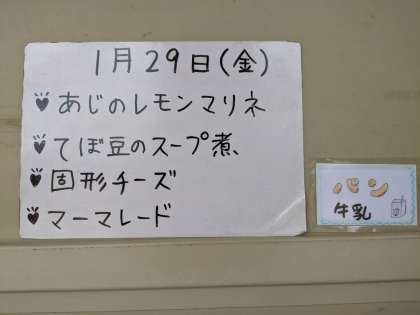 1月29日(金)
あじのレモンマリネ
てぼ豆のスープ煮
固形チーズ
マーマレード
パン
牛乳